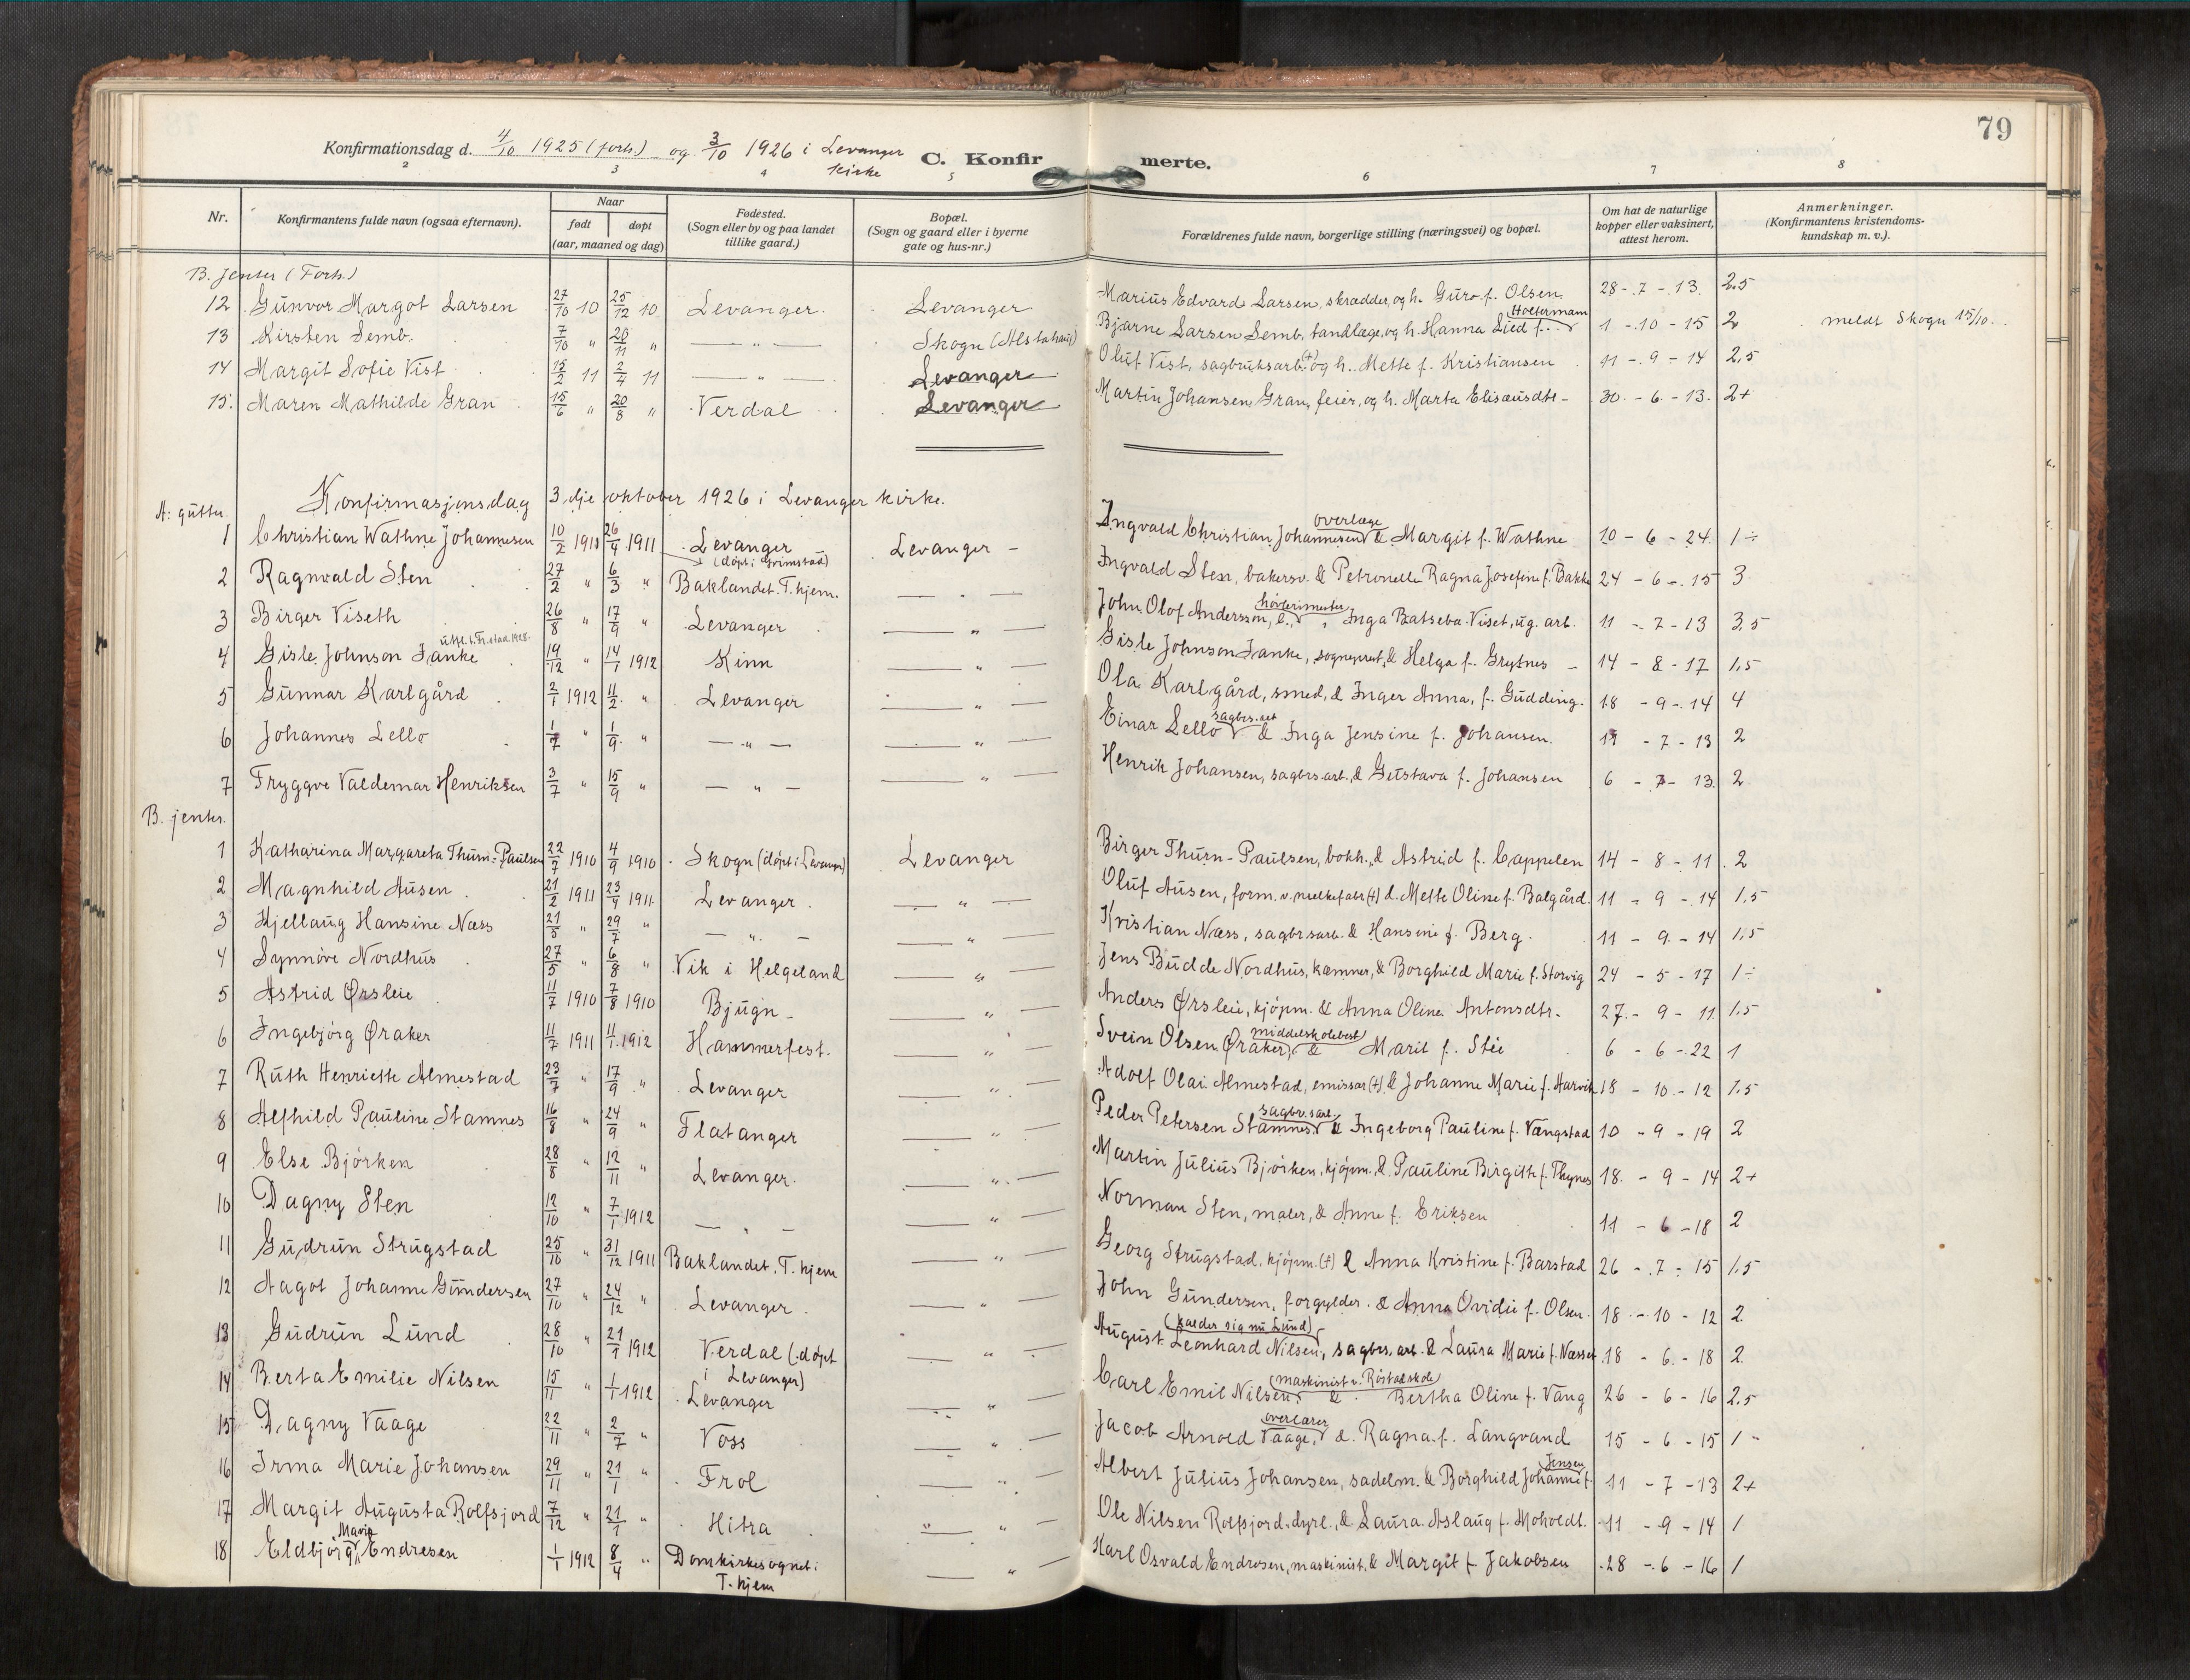 79
Konfirmationsdag d. 4/10 1925 (forts.) og 3/10 1926 i Levanger kirke C. Konfirmerte.
2 3 4 5 6 7 8
Nr. Konfirmantens fulde navn (ogsaa efternavn). Naar født døpt (aar, maaned og dag) Fødested. (Sogn eller by og paa landet tillike gaard.) Bopæl. (Sogn og gaard eller i byerne gate og hus-nr.) Forældrenes fulde navn, borgerlige stilling (næringsvei) og bopæl. Om hat de naturlige kopper eller vaksinert, attest herom. Anmerkninger. (Konfirmantens kristendoms-kundskap m. v.).
B. Jenter (Forts.)
12 Gunvor Margot Larsen 27/10 10 25/12 10 Levanger. Levanger Marius Edvard Larsen, skrædder, og h. Guro f. Olsen 28 - 7 - 13. 2.5
13 Kirsten Semb. 7/10 " 20/11 " — " — Skogn (Alstahaug) Bjarne Larsen Semb, tandlæge, og h. Hanna Lied f. Holtermann 1 - 10 - 15 2 meldt Skogn 15/10.
14 Margit Sofie Vist 15/2 11 2/4 11 — " — Levanger Oluf Vist, sagbruksarb. (+) og h. Mette f. Kristiansen 11 - 9 - 14 2,5
15. Maren Mathilde Gran 15/6 " 20/8 " Verdal Levanger Martin Johansen Gran, feier, og h. Marta Elisæusdtr - 30. - 6 - 13. 2+
Konfirmasjonsdag 3dje oktober 1926 i Levanger kirke.
A: gutter.
1 Christian Wathne Johannesen 10/2 1911 26/4 1911 Levanger (døpt i Grimstad) Levanger - Ingvald Christian Johannesen overlæge & Margit f. Wathne 10 - 6 - 24. 1÷
2 Ragnvald Sten 27/2 " 6/3 " Baklandet. T.hjem. — " — Ingvald Sten, bakersv. & Petronelle Ragna Josefine f. Bakke 24 - 6 - 15 3
3 Birger Viseth 26/8 " 17/9 " Levanger — " — John Olof Andersson, høvlerimester, Inga Batseba Viset, ug. arb. 11 - 7 - 13 3,5
4 Gisle Johnson Janke 19/12 " 14/1 1912 Kinn — " — Gisle Johnson Janke, sogneprest, & Helga f. Grytnes - 14 - 8 - 17 1,5
5 Gunnar Karlgård 2/1 1912 11/2 " Levanger — " — Ola Karlgård, smed, & Inger Anna, f. Gudding. 18 - 9 - 14 4
6 Johannes Lello 1/7 " 1/9 " — " — — " — Einar Lello sagbr.arb & Inga Jensine f. Johansen. 19 - 7 - 13 2
7 Tryggve Valdemar Henriksen 3/7 " 15/9 " — " — — " — Henrik Johansen, sagbr.arb., & Gustava f. Johansen 6 - 7 - 13. 2
B. jenter.
1 Katharina Margareta Thurn-Paulsen 22/7 1910 4/9 1910 Skogn (døpt i Levanger) Levanger Birger Thurn-Paulsen, bokh., & Astrid f. Cappelen 14 - 8 - 11 2
2 Magnhild Ausen 21/2 1911 23/4 1911 Levanger — " — Oluf Ausen, form. v. melkefabr (+) & Mette Oline f. Balgård. 11 - 9 - 14 1,5
3 Kjellaug Hansine Næss 21/5 " 29/7 " — " — — " — Kristian Næss, sagbrsarb. & Hansine f. Berg. 11 - 9 - 14 1,5
4 Synnöve Nordhus 27/5 " 6/8 " Vik i Helgeland — " — Jens Budde Nordhus, kæmner, & Borghild Marie f. Storvig 24 - 5 - 17 1÷
5 Astrid Ørsleie 11/7 1910 7/8 1910 Bjugn - — " — Anders Ørsleie, kjöpm. & Anna Oline Antonsdtr. 27. - 9 - 11 1,5
6 Ingebjörg Øraker 11/7 1911 11/1 1912 Hammerfest. — " — Svein Olsen Øraker, middelskolebest & Marit f. Stéi 6 - 6 - 22 1
7 Ruth Henriette Almestad 23/7 " 17/9 " Levanger — " — Adolf Olai Almestad, emissær (+) & Johanne Marie f. Aarvik 18 - 10 - 12 1,5
8 Alfhild Pauline Stamnes 16/8 " 24/9 " Flatanger — " — Peder Petersen Stamnes sagbr.sarb. & Ingeborg Pauline f. Vængstad 10 - 9 - 19 2
9 Else Björken 28/8 " 12/11 " Levanger. — " — Martin Julius Björken, kjöpm. & Pauline Birgitte f. Thynes 18. - 9 - 14 2+
10 Dagny Sten 12/10 " 7/1 1912 — " — — " — Norman Sten, maler, & Anne f. Eriksen 11 - 6 - 18 2
11 Gudrun Strugstad 25/10 " 31/12 1911 Baklandet. T.hjem — " — Georg Strugstad, kjöpm. (+) & Anna Kristine f. Barstad 26 - 7 - 15 1,5
12 Aagot Johanne Gundersen 27/10 " 24/12 " Levanger. — " — John Gundersen, forgylder. & Anna Ovidie f. Olsen. 18 - 10 - 12 2.
13 Gudrun Lund 28/10 " 21/1 1912 Verdal (döpt i Levanger) — " — August Leonhard Nilsen (kalder sig nu Lund), sagbrs. arb. & Laura Marie f. Næsset 18 - 6 - 18 2.
14 Berta Emilie Nilsen 15/11 " 1/1 1912 Levanger — " — Carl Emil Nilsen, (maskinist v. Röstadskole) & Bertha Oline f. Vang 26 - 6 - 16 2,5
15 Dagny Vaage 22/11 " 2/7 " Voss — " — Jacob Arnold Vaage, overlærer & Ragna f. Langvand 15 - 6 - 15 1 -
16 Irma Marie Johansen 29/11 " 21/1 " Frol — " — Albert Julius Johansen, sadelm. & Borghild Johanne f. Jensen 11 - 7 - 13 2+
17 Margit Augusta Rolfsjord 7/12 " 21/1 " Hitra — " — Ole Nilsen Rolfsjord, dyrl., & Laura Aslaug f. Moholdt. 11 - 9 - 14 1
18 Eldbjörg Marie Endresen 1/1 1912 8/4 " Domkirkesognet i T.hjem — " — Karl Osvald Endresen, maskinist, & Margit f. Jakobsen 28 - 6 - 16 1